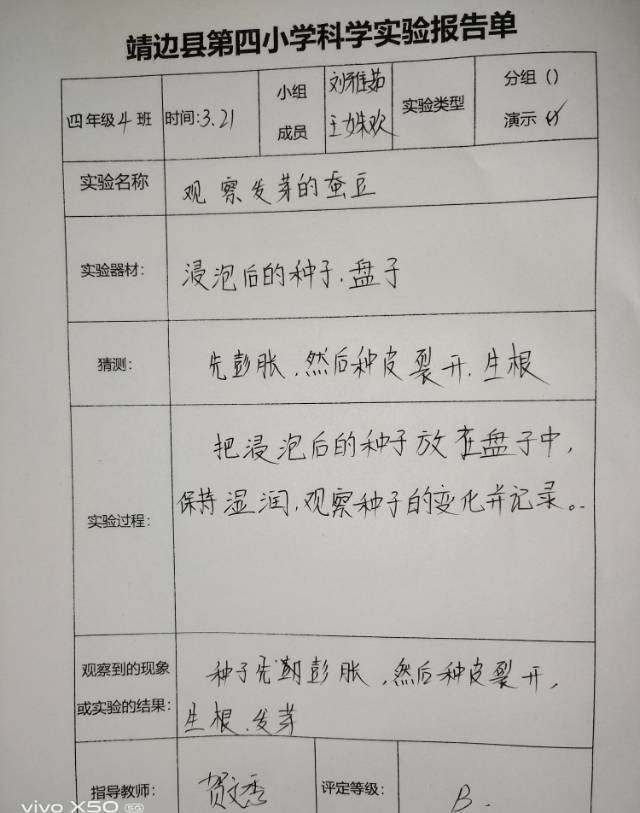 靖边县第四小学科学实验报告单
四年级4班 时间:3.21 小组成员 刘雅茹 王姝欢 实验类型 分组() 演示(√)
实验名称 观察发芽的蚕豆
实验器材: 浸泡后的种子.盘子
猜测: 先彭胀.然后种皮裂开.生根
实验过程: 把浸泡后的种子放在盘子中,
保持湿润,观察种子的变化并记录。
观察到的现象 种子先彭胀,然后种皮裂开,
或实验的结果: 生根.发芽
指导教师: 贺文秀 评定等级: B.
vivo X50 5G